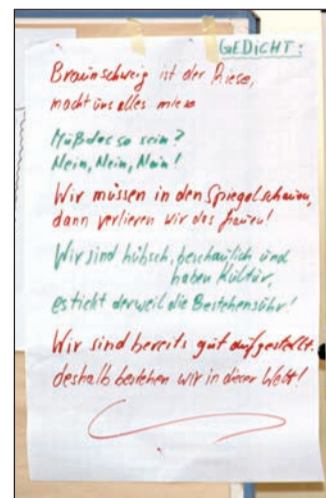 GEDICHT:
Braunschweig ist der Riese,
macht uns alles miese
Muß das so sein?
Nein, Nein, Nein!
Wir müssen in den Spiegel schauen,
dann verlieren wir das Grauen!
Wir sind hübsch, beschaulich und
haben Kultur,
es tickt derweil die Bestehensuhr!
Wir sind bereits gut aufgestellt.
deshalb bestehen wir in dieser Welt!